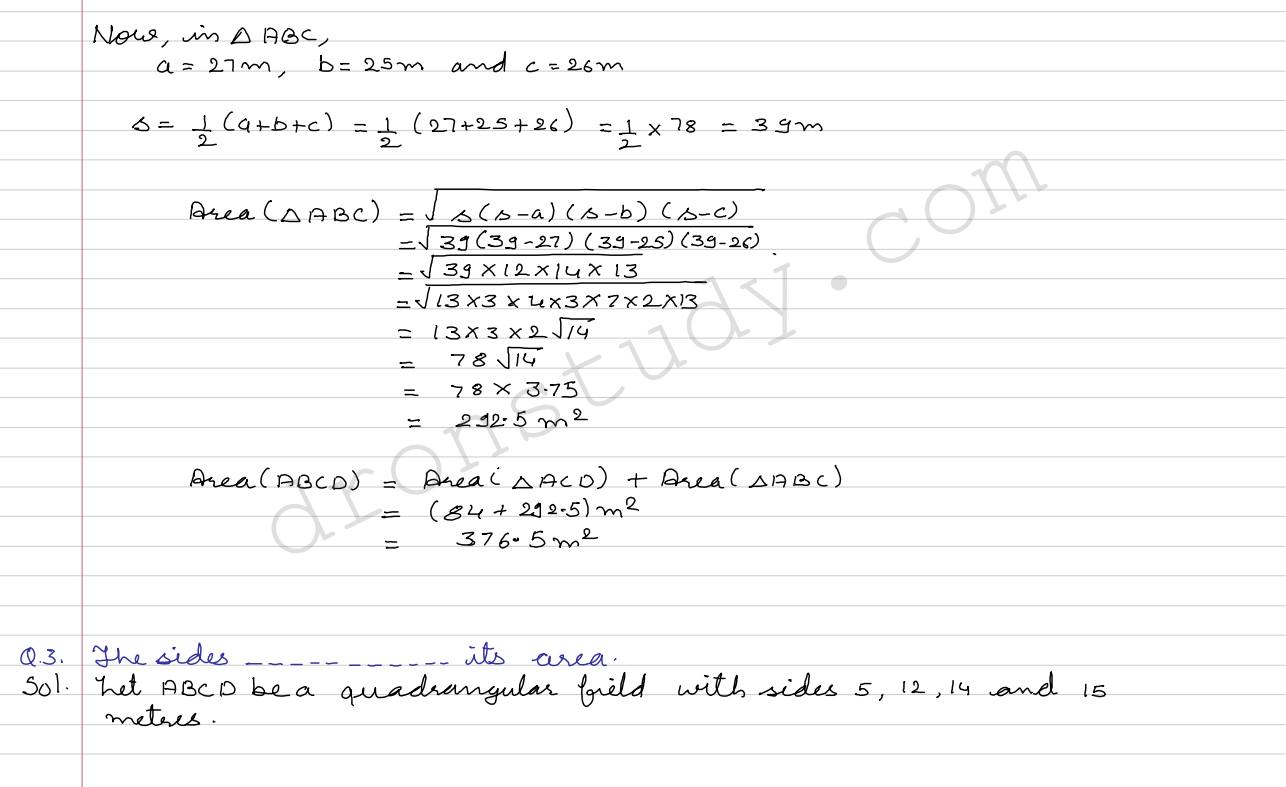 Now, in △ ABC,
a = 27m, b = 25m and c = 26m
s = 1/2 (a+b+c) = 1/2 (27+25+26) = 1/2 × 78 = 39m
Area (△ ABC) = √s(s-a)(s-b)(s-c)
= √39(39-27)(39-25)(39-26)
= √39×12×14×13
= √13×3×4×3×7×2×13
= 13×3×2√14
= 78√14
= 78 × 3.75
= 292.5 m²
Area (ABCD) = Area (△ ACD) + Area (△ ABC)
= (84 + 292.5) m²
= 376.5 m²
Q.3. The sides ------------ its area.
Sol. Let ABCD be a quadrangular field with sides 5, 12, 14 and 15
metres.
dronstudy.com